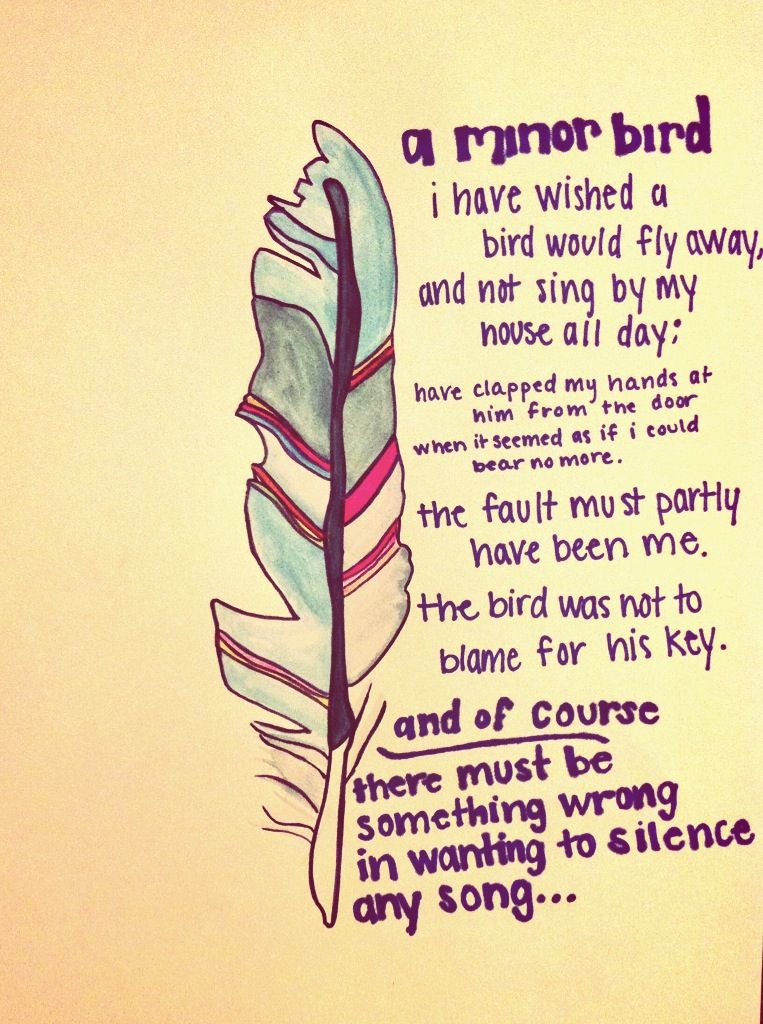 a minor bird
i have wished a
bird would fly away,
and not sing by my
house all day;
have clapped my hands at
him from the door
when it seemed as if i could
bear no more.
the fault must partly
have been me.
the bird was not to
blame for his key.
and of course
there must be
something wrong
in wanting to silence
any song...